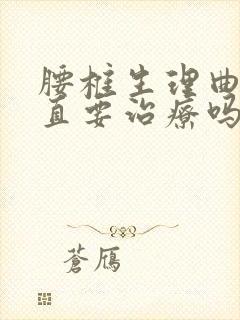 腰椎生理曲
直要治療吗
蒼鴈